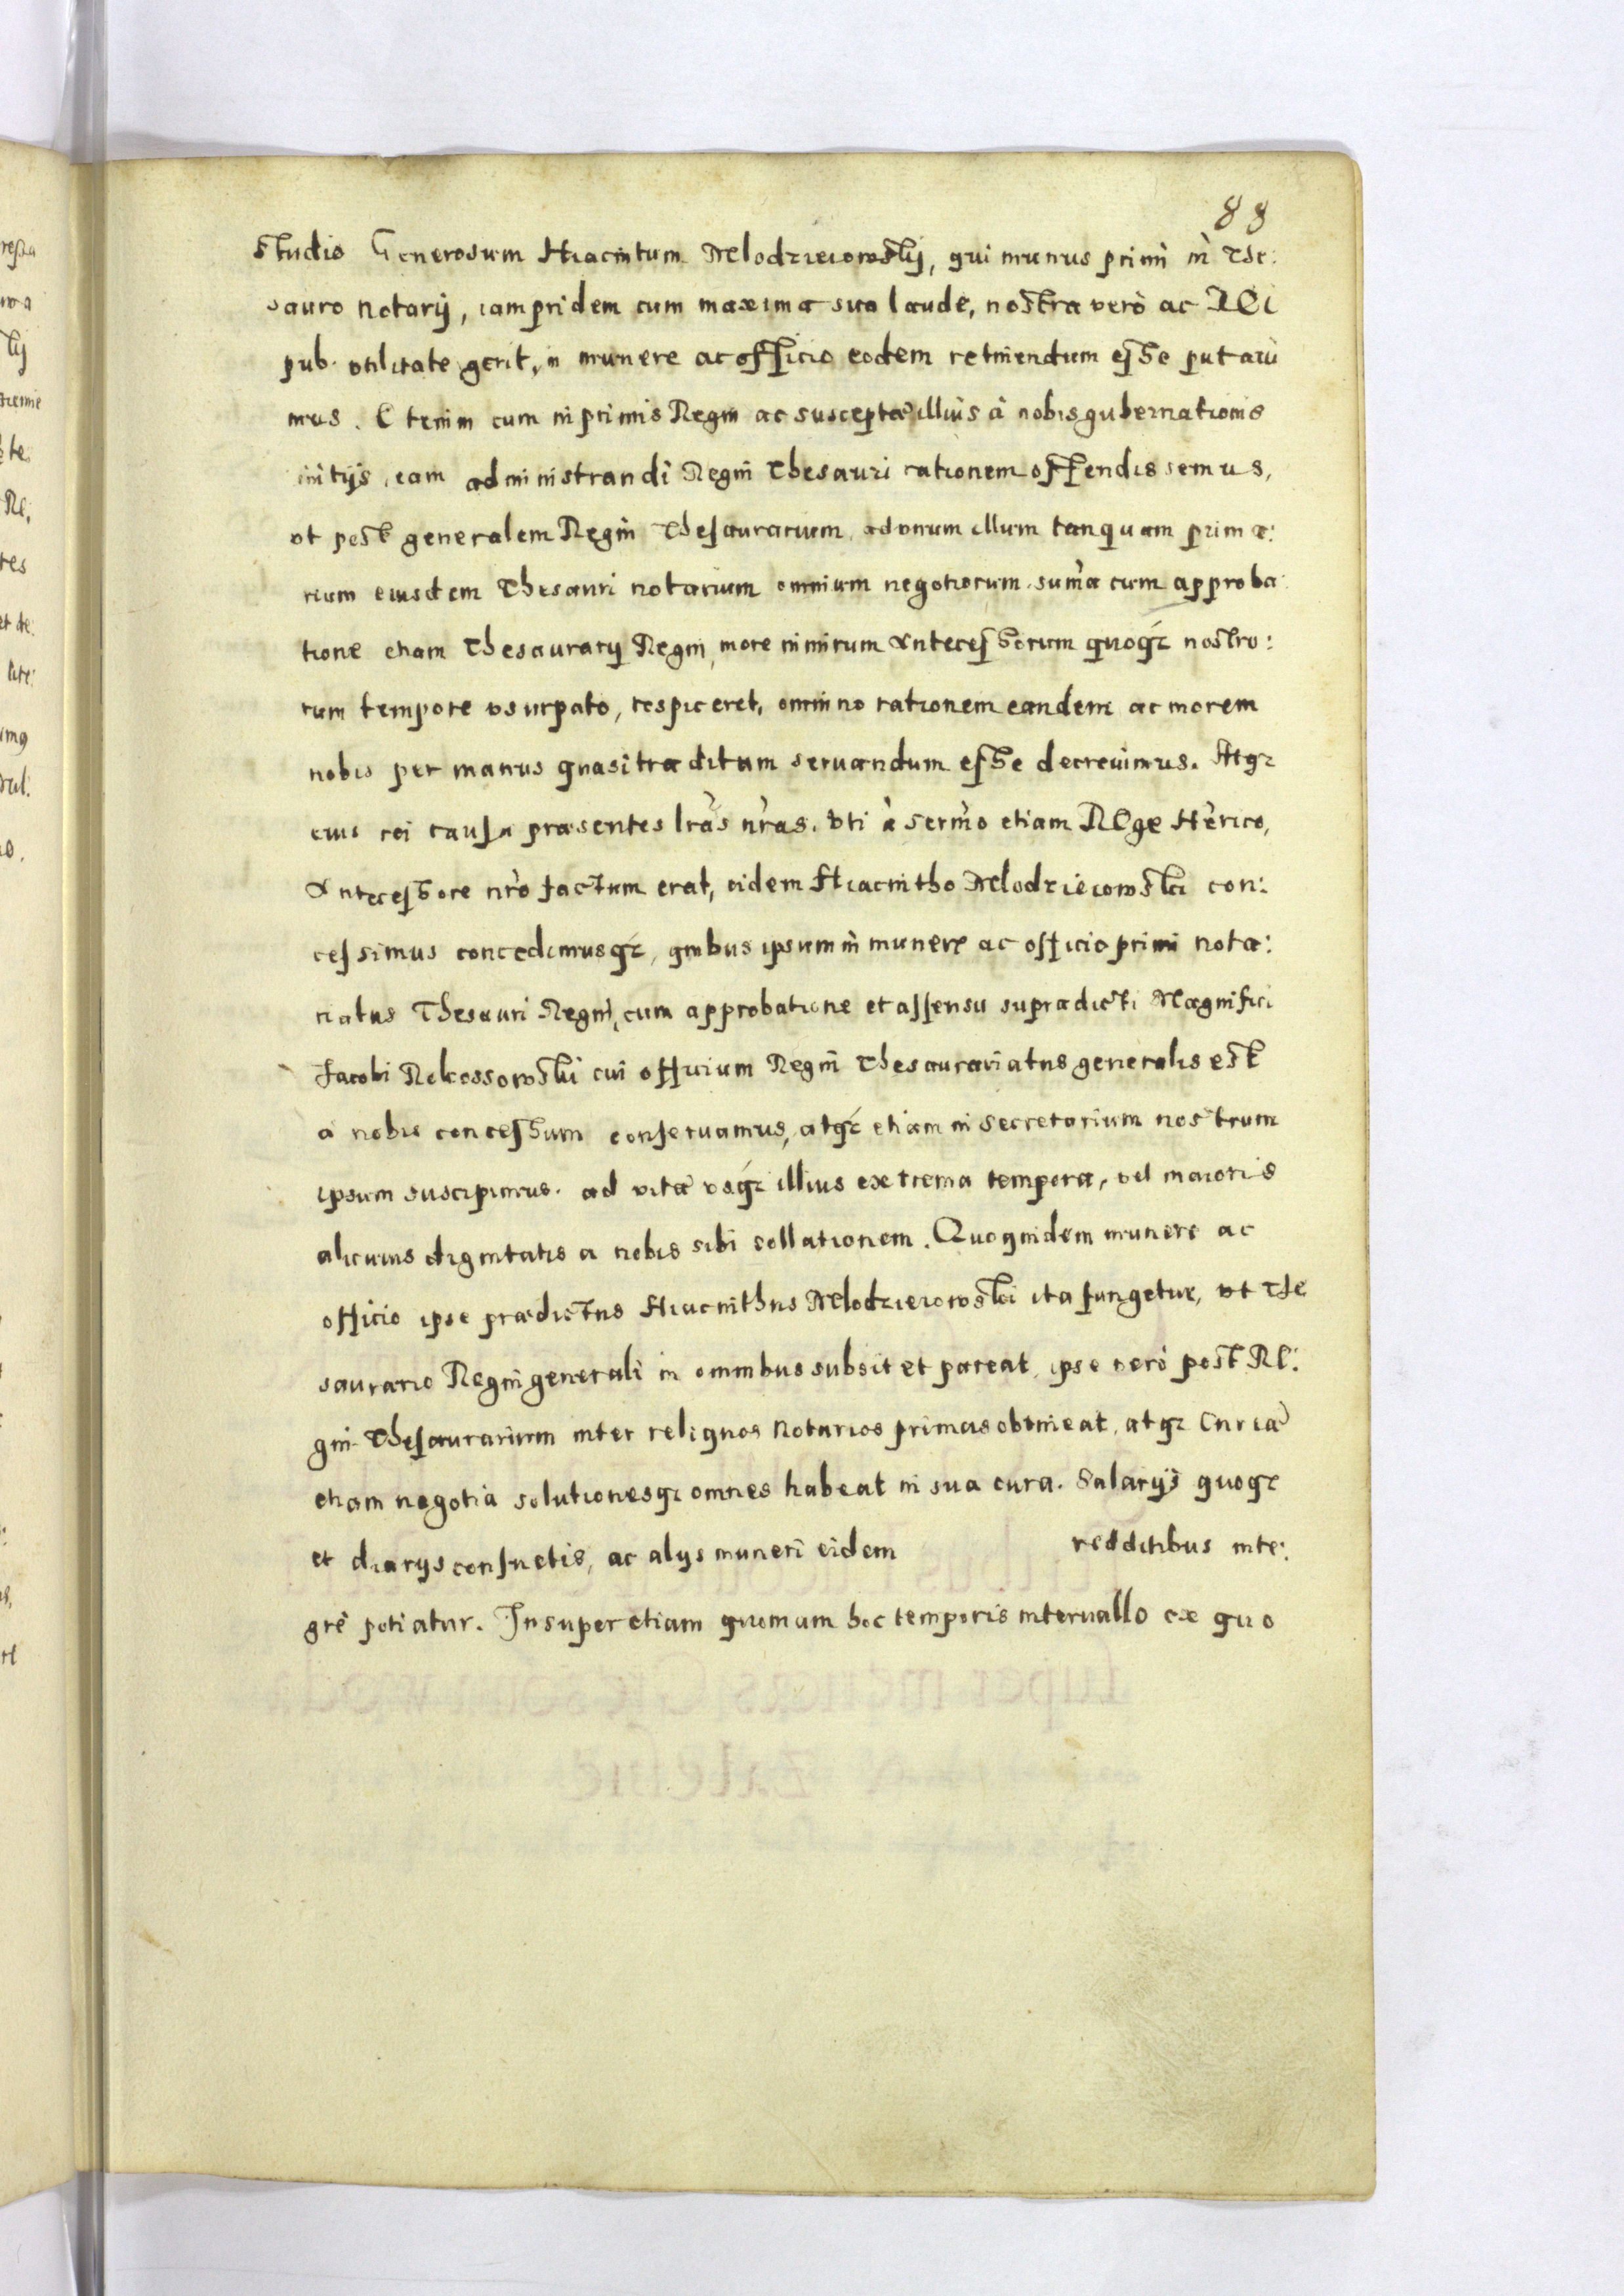 88
studio Generosum Hiacintum Mlodzieiowskij, qui munus primi in The:
sauro notarij, iampridem cum maxima sua laude, nostra verò ac REi
pub. vtilitate gerit, in munere ac officio eodem retinendum esse putaui
mus. Etenim cum in primis Regni ac susceptæ illius à nobis gubernationis
initijs, eam administrandi Regni Thesauri rationem offendissemus,
vt post generalem Regni Thesaurarium, ad vnum illum tanquam prima:
rium eiusdem Thesauri notarium omnium negotiorum suma cum approba
tione etiam Thesaurarij Regni, more nimirum Antecessorum quoqz nostro:
rum tempore vsurpato, respiceret, omnino rationem eandem ac morem
nobis per manus quasi traditum seruandum esse decreuimus. Atqz
eius rei causa præsentes lras nras, vti à sermo etiam REge Hërico,
Antecessore nro factum erat, eidem Hiacintho Mlodzieiowski con:
cessimus concedimusqz, quibus ipsum in munere ac officio primi nota:
riatus Thesauri Regni, cum approbatione et assensu supradicti Magnifici
Jacobi Rokossowski cui officium Regni Thesaurariatus generalis est
a nobis concessum conseruamus, atqz etiam in secretarium nostrum
ipsum suscipimus. ad vitæ vsqz illius extrema tempora, vel maioris
alicuius dignitatis a nobis sibi collationem. Quo quidem munere ac
officio ipse prædictus Hiacinthus Mlodzieiowski ita fungetur, vt The
saurario Regni generali in omnibus subsit et pareat, ipse verò post RE:
gni Thesaurarium inter reliquos Notarios primas obtineat, atqz Curiæ
etiam negotia solutionesqz omnes habeat in sua cura. Salarijs quoqz
et diarijs consuetis, ac alijs muneri eidem redditibus inte:
grè potiatur. Insuper etiam quoniam hoc temporis interuallo ex quo